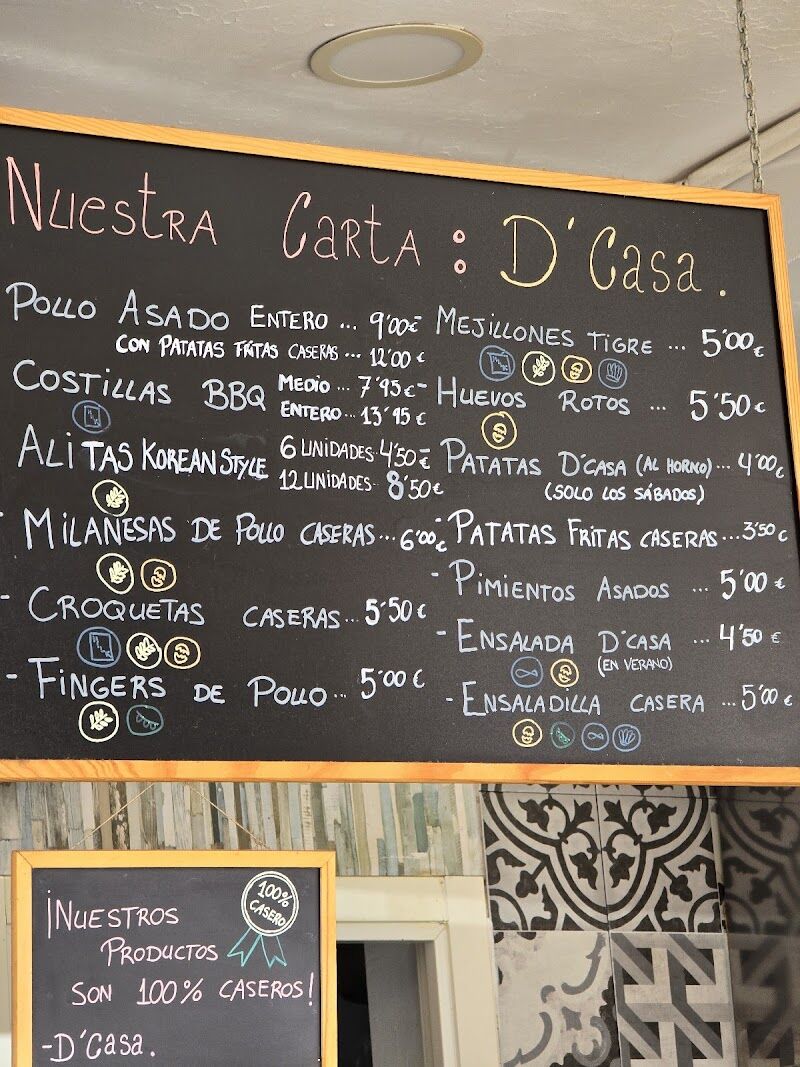 Nuestra Carta : D'Casa.
Pollo Asado Entero ... 9'00€
con patatas fritas caseras ... 12'00 €
Costillas BBQ Medio ... 7'95€
Entero ... 13'95€
Alitas Korean Style 6 unidades 4'50€
12 unidades 8'50€
- Milanesas de Pollo caseras ... 6'00€
- Croquetas caseras ... 5'50 €
- Fingers de Pollo ... 5'00 €
- Mejillones Tigre ... 5'00€
- Huevos Rotos ... 5'50 €
- Patatas D'Casa (al horno) ... 4'00€
(solo los sábados)
- Patatas Fritas caseras ... 3'50€
- Pimientos Asados ... 5'00 €
- Ensalada D'Casa ... 4'50 €
(en verano)
- Ensaladilla casera ... 5'00 €
100%
casero
¡Nuestros
Productos
son 100% caseros!
-D'Casa.